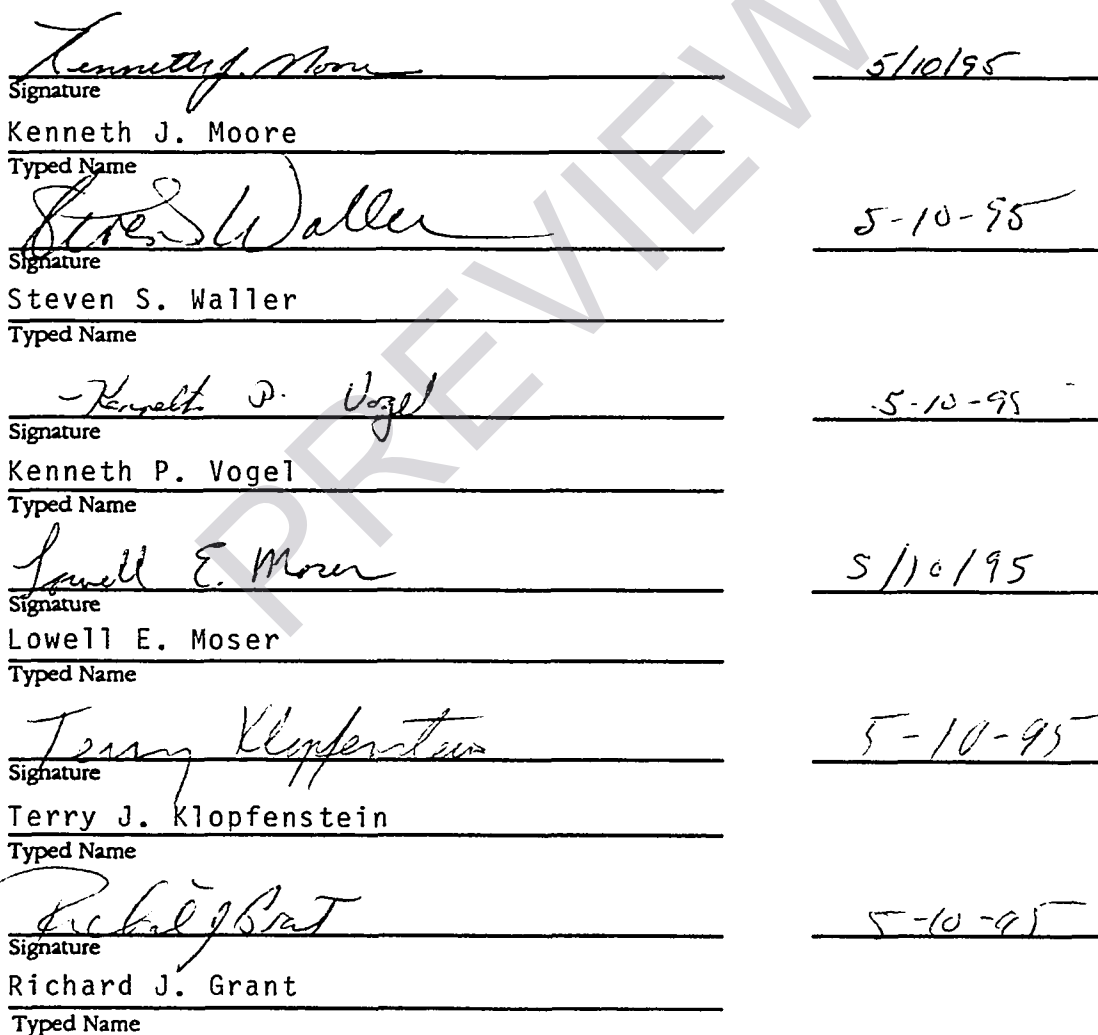 Kenneth J. Moore 5/10/95
Signature
Kenneth J. Moore
Typed Name
Steven S Waller 5-10-95
Signature
Steven S. Waller
Typed Name
Kenneth P. Vogel 5-10-95
Signature
Kenneth P. Vogel
Typed Name
Lowell E. Moser 5/10/95
Signature
Lowell E. Moser
Typed Name
Terry Klopfenstein 5-10-95
Signature
Terry J. Klopfenstein
Typed Name
Richard J Grant 5-10-95
Signature
Richard J. Grant
Typed Name
PREVIEW